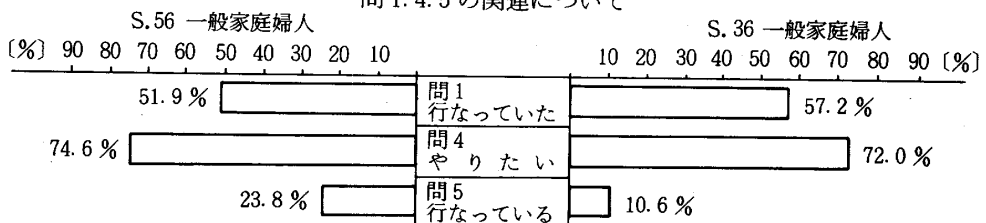 問1.4.5の関連について
S.56 一般家庭婦人 S.36 一般家庭婦人
〔%〕 90 80 70 60 50 40 30 20 10 10 20 30 40 50 60 70 80 90 〔%〕
51.9% 問1 行なっていた 57.2%
74.6% 問4 やりたい 72.0%
23.8% 問5 行なっている 10.6%